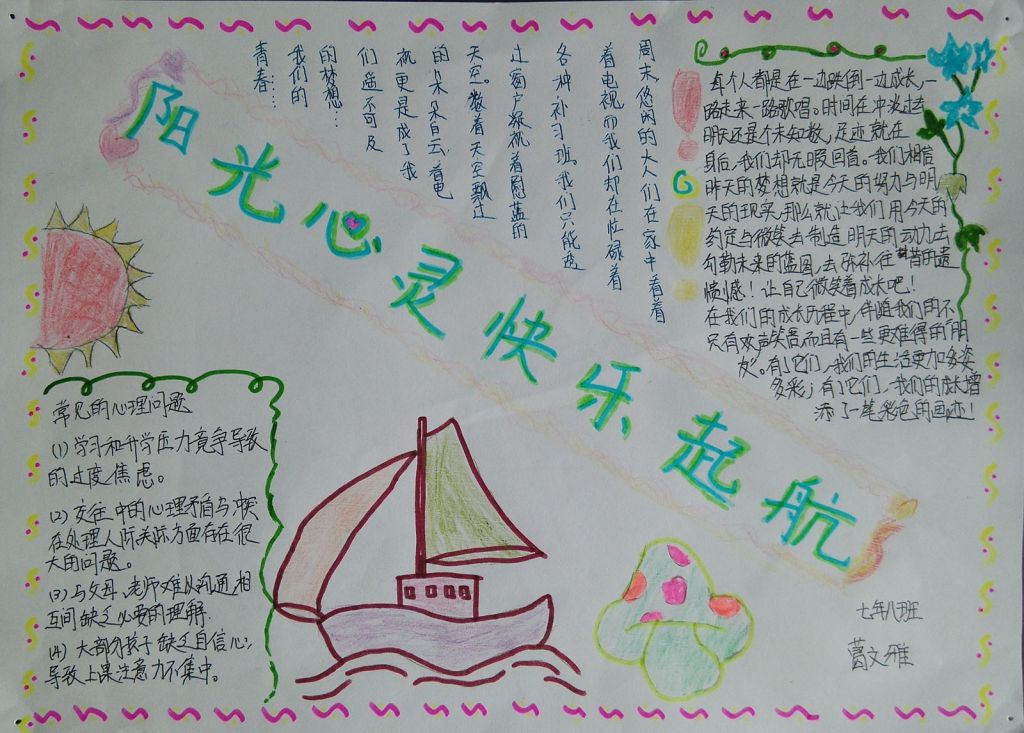 阳光心灵快乐起航
周末,悠闲的大人们在家中看着
着电视而我们却在忙碌着
各种补习班。我们只能透
过窗户凝视着蔚蓝的
天空。数着天空飘过
的朵朵白云,看电
视更是成了我
们遥不可及
的梦想…
我们的
青春……
每个人都是在一边跌倒一边成长,一
路走来一路歌唱。时间在冲淡过去
明天还是个未知数,足迹就在
身后,我们却无暇回首。我们相信
昨天的梦想就是今天的努力与明
天的现实,那么就让我们用今天的
约定与微笑去制造明天的动力去
勾勒未来的蓝图,去弥补往昔的遗
憾!让自己微笑着成长吧!
在我们的成长历程中,伴随我们的不
只有欢声笑语而且有一些更难得的"朋
友"。有了它们,我们的生活更加多姿
多彩;有了它们,我们的成长增
添了一笔彩色的画迹!
常见的心理问题
(1)学习和升学压力竞争导致
的过度焦虑。
(2)交往中的心理矛盾与冲突
在处理人际关际方面存在很
大的问题。
(3)与父母、老师难以沟通,相
互间缺乏必要的理解.
(4)大部分孩子缺乏自信心;
导致上课注意力不集中。
七年八班
葛文雅